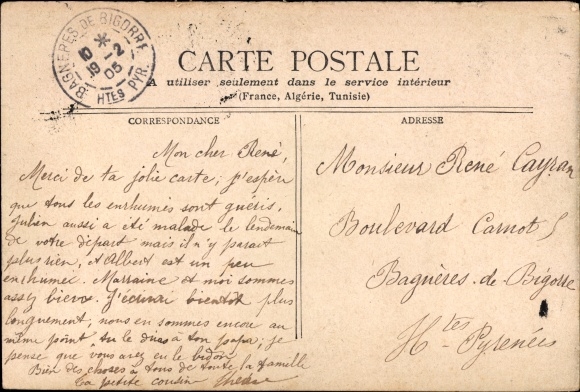 BAGNÈRES-DE-BIGORRE
19-2
05
HTES PYR.
CARTE POSTALE
A utiliser seulement dans le service intérieur
(France, Algérie, Tunisie)
CORRESPONDANCE
ADRESSE
Mon cher René,
Merci de ta jolie carte; j'espère
que tous les enrhumés sont guéris,
Julien aussi a été malade le lendemain
de votre départ mais il n'y parait
plus rien, et Albert est un peu
enrhumé. Marraine et moi sommes
assez bien. J'écrirai bientôt plus
longuement; nous en sommes encore au
même point, tu le diras à ton papa; je
pense que vous avez eu le bidon
Bien des choses à tous de toute la famille
ta petite cousin
Monsieur René Cayran
Boulevard Carnot 5
Bagnères-de-Bigorre
Htes Pyrénées